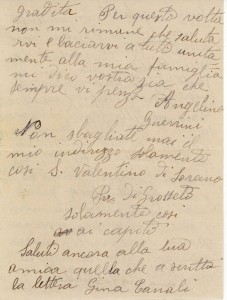 gradita Per questo volta
non mi rimane che saluta
rvi e baciarvi a tuti unita
mente alla mia famiglia
mi dici vostra zia che
sempre vi pensa Angelina
Guerrini
Non sbagliate mai il
mio indirizzo solamente
cosi S. Valentino di Sorano
Pro di Grosseto
solamente cosi
ai capito
Saluto ancora alla tua
amica quella che a scritto
la lettera Gina Canali